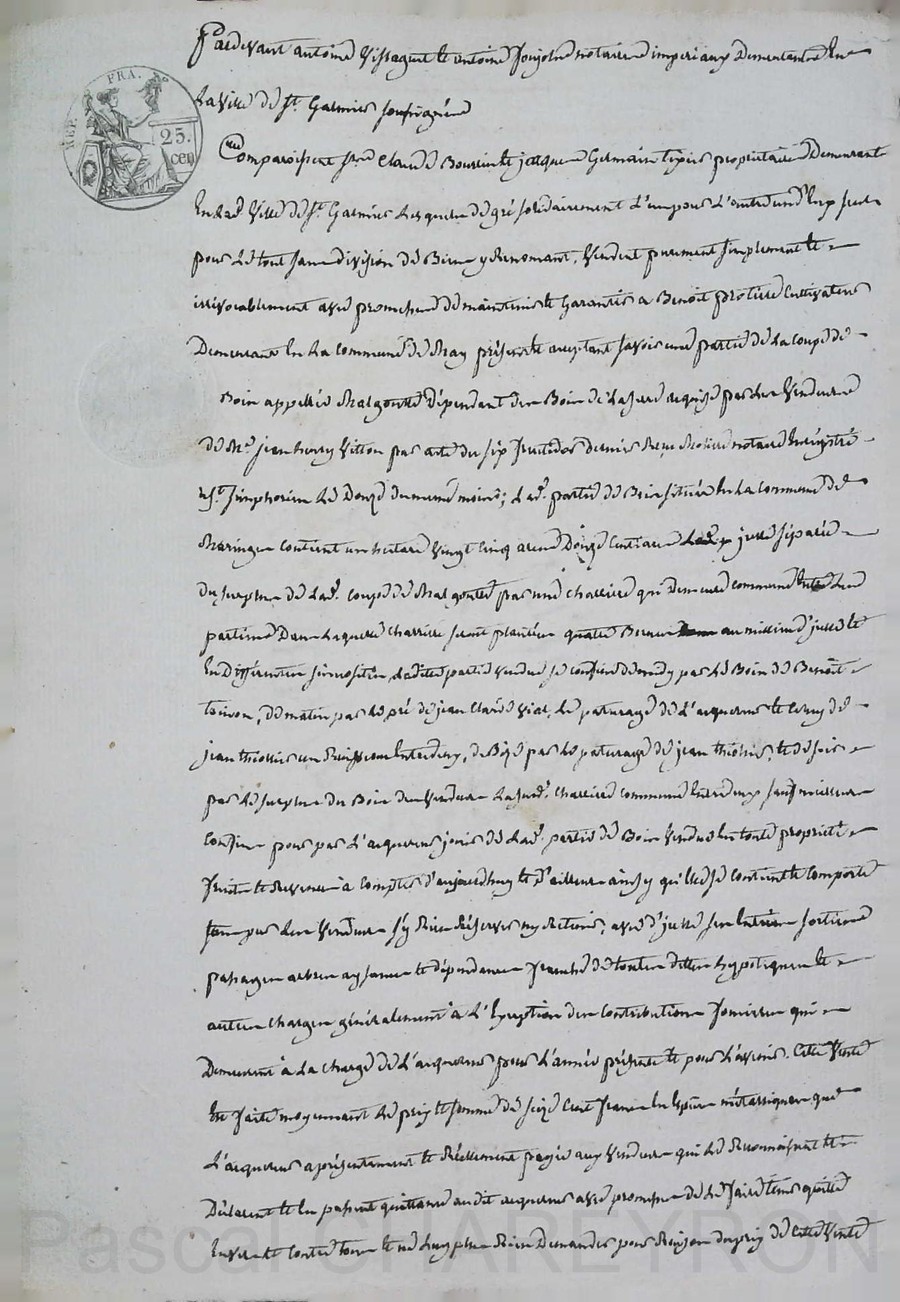 REP. FRA.
25. cen
Pardevant antoine Vissaguet et antoine notaires imperiaux Demeurants En
La Ville de St. Galmier soussignés
Comparoissent Srs. Claude et jacques Germain propriétaires Demeurant
En lad. Ville de St. Galmier Lesquels de gré solidairement L'un pour L'autre un d'eux seul
pour Le tout sans division de Biens y Renonçant, Vendent purement simplement et
irrévocablement avec promesse de maintenir et Garantir a Benoit protière Cultivateur
Demeurant En La Commune de present et acceptant savoir une partie de La coupe de
Bois appellée Malgoutte dépendant des Bois de Lafaye acquise par Les Vendeurs
de Mr. jean henry Vitton par acte du six fructidor dernier Reçu notaire Enregistré
a St. Simphorien Le du meme mois; Lad. partie de Bois située En La Commune de
Maringes contient un hectare Vingt Cinq ares Douze Centiares juste séparée
du surplus de Lad. coupe de Malgoutte par une charrière qui Demeure commune Entre Les
parties Dans Laquelle charrière seront plantées quatre Bornes au milieu d'juste et
En Différentes sinuosités, Ladite partie vendue se confine de midy par Le Bois de Benoit
de matin par Le pré de jean Claude Vial, Le paturage de L'acquereur et Celuy de
jean un Ruisseau Entredeux, de Bize par Le paturage de jean et de soir
par Le surplus du Bois des Vendeurs Lasusd. charrière commune Entredeux sauf meilleurs
Confins pour par L'acquereur jouir de Lad. partie de Bois Vendue En toute propriété
fruits et Revenus à Compter d'aujourdhuy et d'ailleurs ainsy qu'elle se contient et Comporte
sans par Les Vendeurs s'y Rien Réserver ny Retenir, avec d'juste ses Entrées sorties
passages arbres aysances et dépendances franche de toutes dettes hypotèques et
autres charges généralement à L'Exception des Contributions foncières qui
Demeurent à La charge de L'acquereur pour L'année présente et pour L'avenir. Cette Vente
Est faite moyennant Le prix et somme de seize Cent francs En Espèces métalliques que
L'acquereur a présentement et Réellement payée aux Vendeurs qui Le Reconnoissent et
Déclarent et En passent quittance audit acquereur avec promesse de Le faire tenir quitte
Envers et Contre tous et ne Luy plus Rien Demander pour Raison du prix de Cette Vente
Pascal CHAREYRON